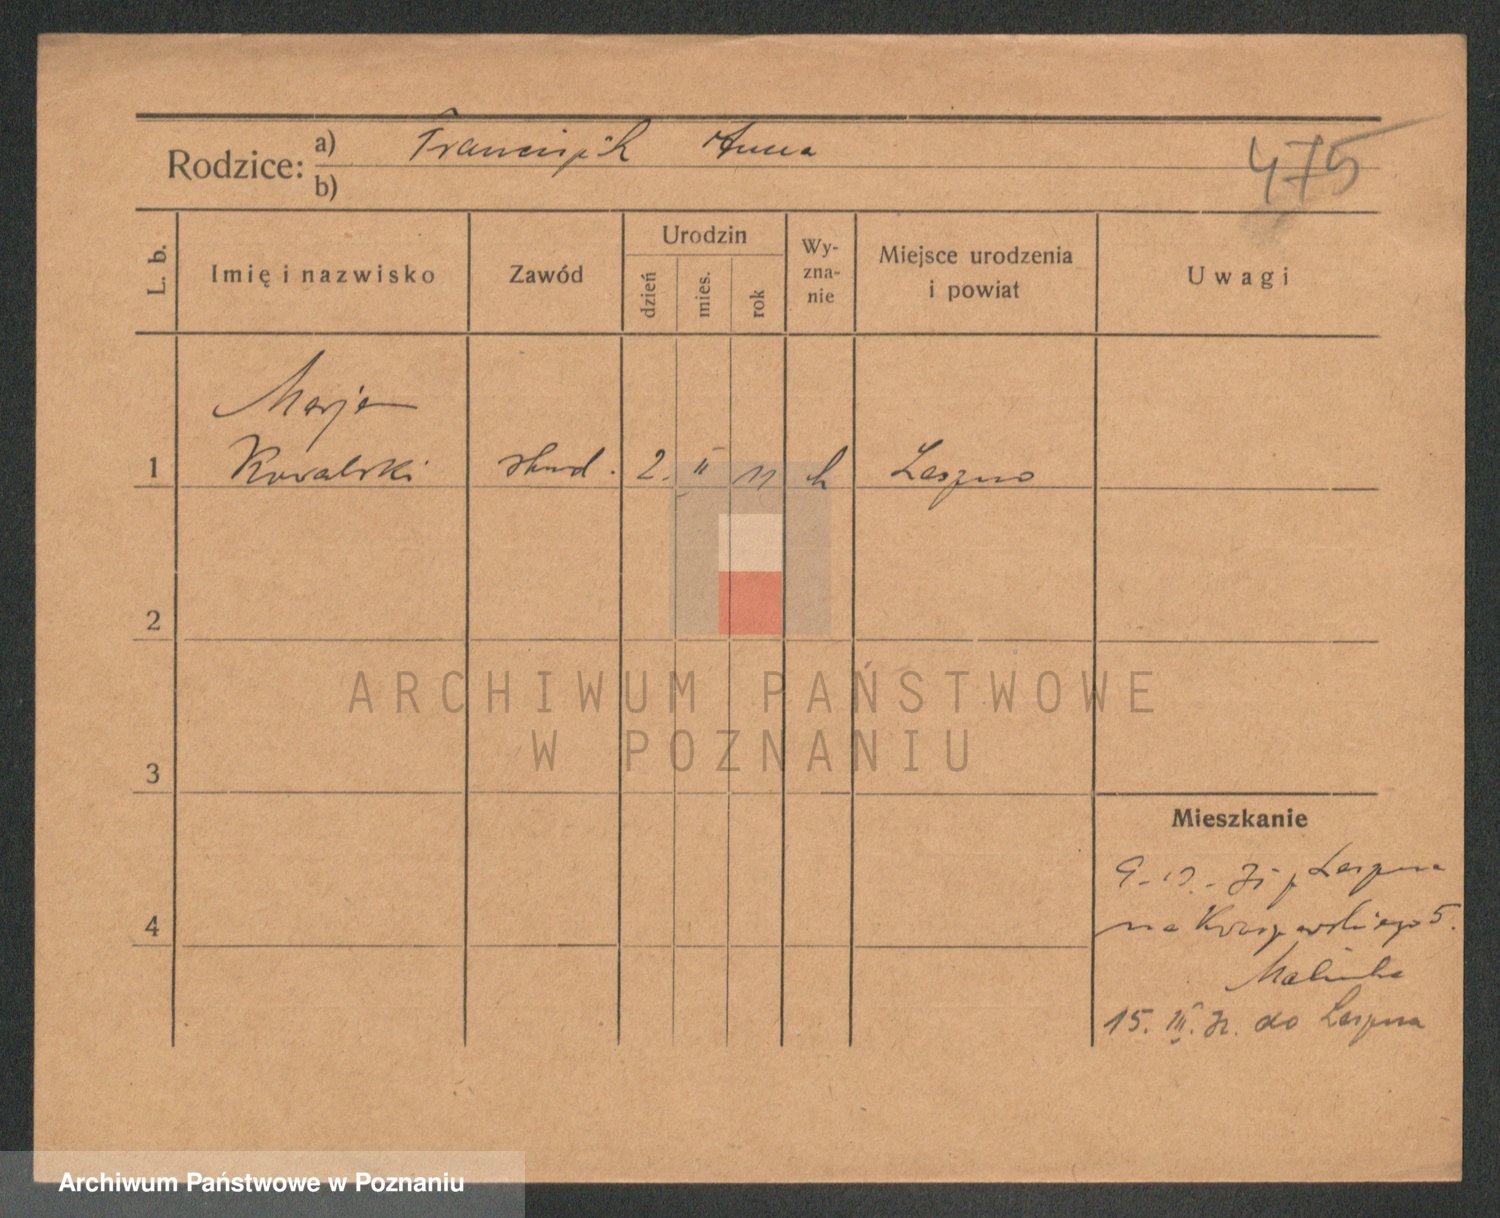 Rodzice: a) Franciszek Anna
b)
475
L. b. Imię i nazwisko Zawód Urodzin dzień mies. rok Wy-zna-nie Miejsce urodzenia i powiat Uwagi
Marjan
1 Kowalski stud. 2. II 11 k Leszno
2
3
4
Mieszkanie
z Leszna
na Kraszewskiego 5.
Malinka
15. III. do Leszna
ARCHIWUM PAŃSTWOWE
W POZNANIU
Archiwum Państwowe w Poznaniu